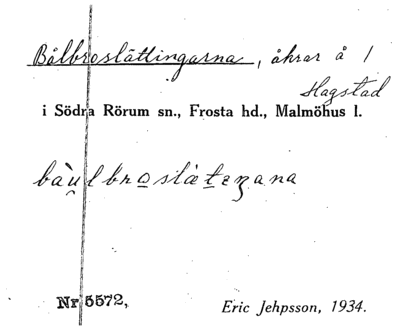 Bålbroslättingarna, åkrar å 1
Hagstad
i Södra Rörum sn., Frosta hd., Malmöhus l.
Nr 5572,
Eric Jehpsson, 1934.